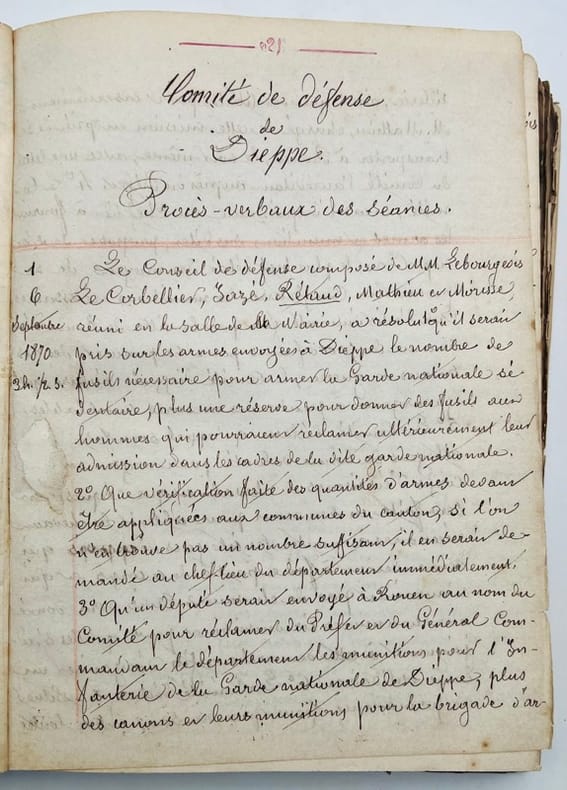 21
Comité de défense
de
Dieppe.
Procès-verbaux des séances.
1
6
Septembre
1870
2h. 1/2 s.
Le Conseil de défense composé de M.M. Lebourgeois
Le Corbellier, Rétaud, Mathieu et Morisse,
réuni en la salle de la Mairie, a résolu qu'il serait
pris sur les armes envoyées à Dieppe le nombre de
fusils nécessaire pour armer la Garde nationale sé
dentaire, plus une réserve pour donner des fusils aux
hommes qui pourraient réclamer ultérieurement leur
admission dans les cadres de la dite garde nationale.
2° Que vérification faite des quantités d'armes devant
être appliquées aux communes du canton, si l'on
n'en trouve pas un nombre suffisant, il en serait de-
mandé au chef lieu du département immédiatement.
3° Qu'un député serait envoyé à Rouen au nom du
Comité pour réclamer du Préfet et du Général Com-
mandant le département les munitions pour l'In-
fanterie de la Garde nationale de Dieppe, plus
des canons et leurs munitions pour la brigade d'ar-